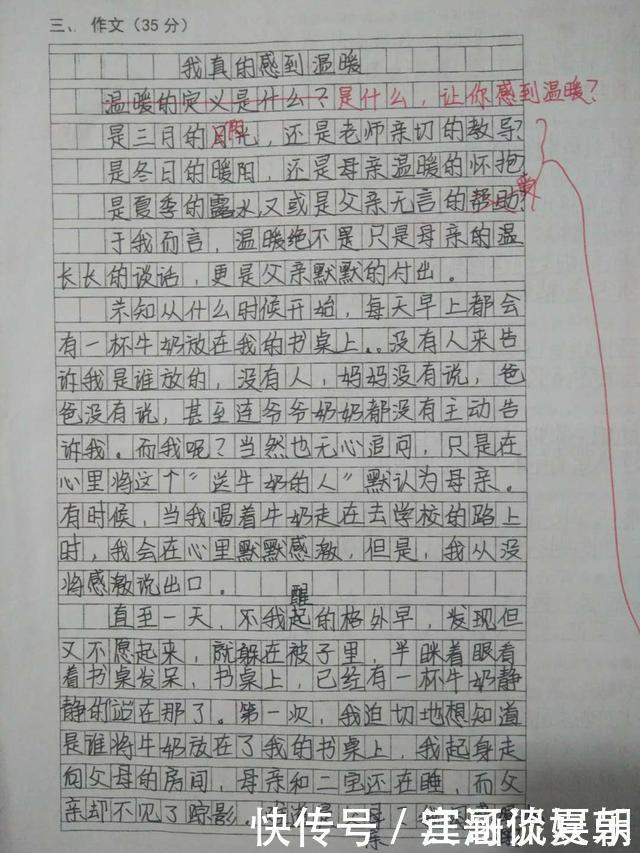 三、作文（35分）
我真的感到温暖
温暖的定义是什么？是什么，让你感到温暖？
是三月的阳光，还是老师亲切的教导？
是冬日的暖阳，还是母亲温暖的怀抱？
是夏季的露水，又或是父亲无言的帮助？
于我而言，温暖绝不是只是母亲的温
长长的谈话，更是父亲默默的付出。
未知从什么时候开始，每天早上都会
有一杯牛奶放在我的书桌上。没有人来告
诉我是谁放的，没有人，妈妈没有说，爸
爸没有说，甚至连爷爷奶奶都没有主动告
诉我。而我呢？当然也无心追问，只是在
心里将这个“送牛奶的人”默认为母亲。
有时候，当我喝着牛奶走在去学校的路上
时，我会在心里默默感激，但是，我从没
将感激说出口。
醒
直至一天，不我起的格外早，发现但
又不愿起来，就躲在被子里，半眯着眼看
着书桌发呆，书桌上，已经有一杯牛奶静
静的站在那了。第一次，我迫切地想知道
是谁将牛奶放在了我的书桌上，我起身走
向父母的房间，母亲和二宝还在睡，而父
亲却不见了踪影。
快传号／